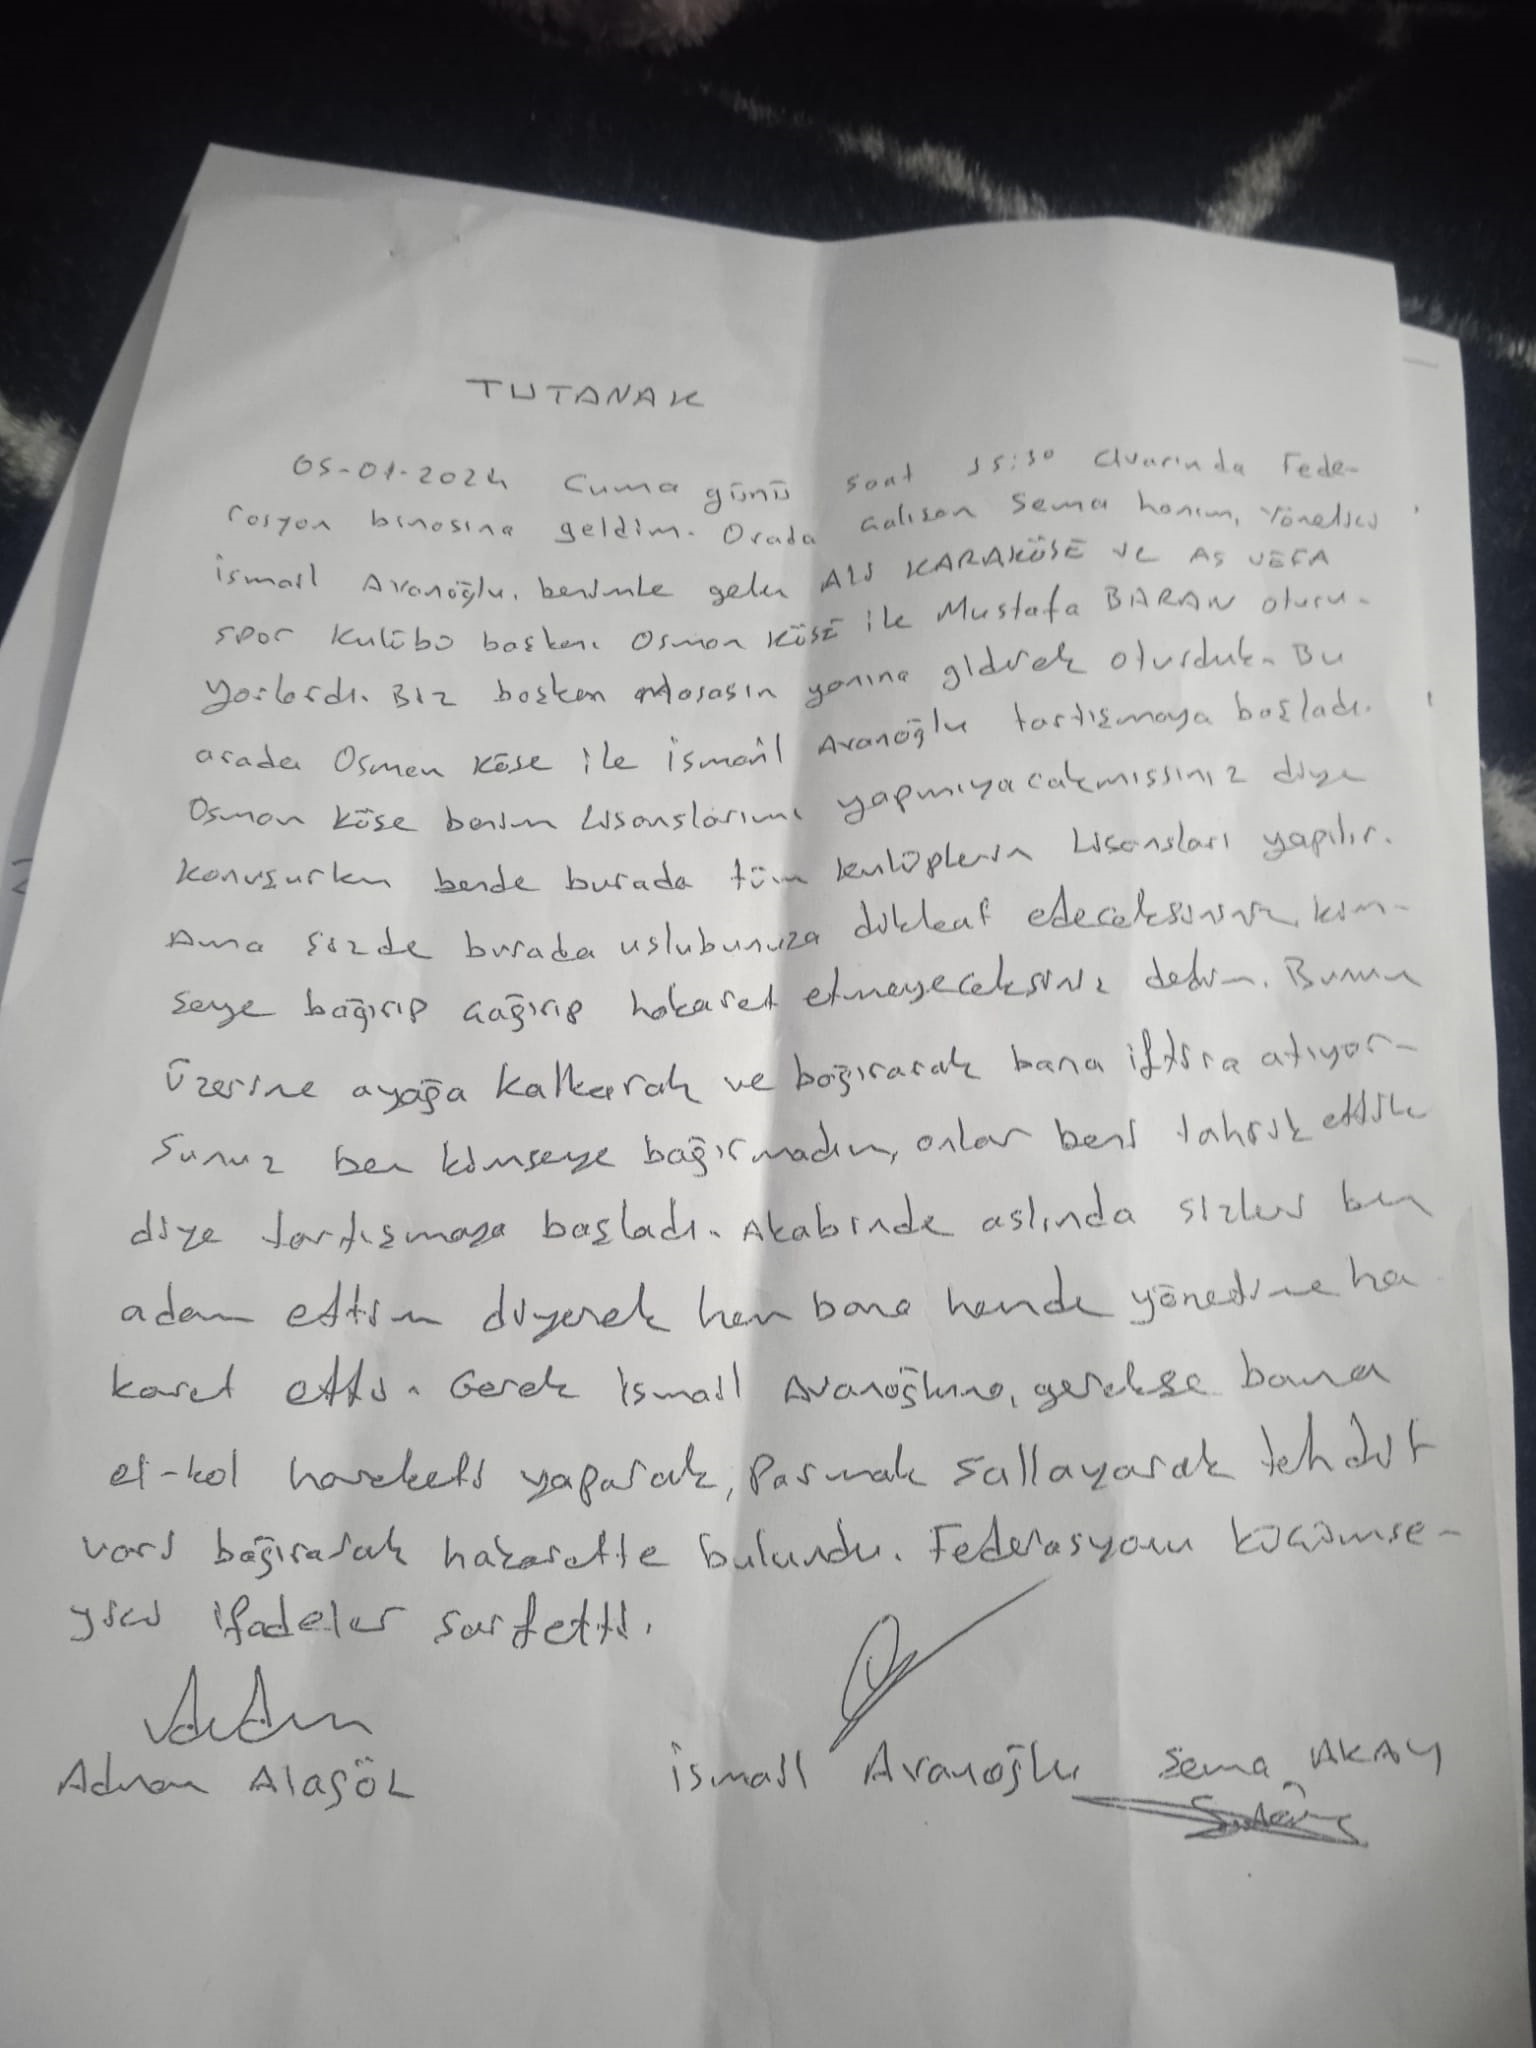 TUTANAK
05-01-2024 Cuma günü saat 15:30 civarında Fede-
rasyon binasına geldim. Orada çalışan Sema hanım, Yönetici
İsmail Avanoğlu, benimle gelen ALİ KARAKÖSE ve AS VEFA
spor kulübü başkanı Osman KÖSE ile Mustafa BARAN oturu-
yorlardı. Biz başkan masasın yanına giderek oturduk. Bu
arada Osman Köse ile İsmail Avanoğlu tartışmaya başladı.
Osman Köse benim lisanslarımı yapmıyacakmıssınız diye
konuşurken bende burada tüm kulüplerin lisansları yapılır.
Ama sizde burada uslubunuza dikkat edeceksiniz, kim-
seye bağırıp çağırıp hakaret etmeyeceksiniz dedim. Bunun
üzerine ayağa kalkarak ve bağırarak bana iftira atıyor-
sunuz ben kimseye bağırmadım, onlar beni tahrik ettiler
diye tartışmaya başladı. Akabinde aslında sizleri ben
adam ettim diyerek hem bana hemde yönetime ha
karet etti. Gerek İsmail Avanoğluna, gerekse bana
el-kol hareketi yaparak, parmak sallayarak tehdit
vari bağırarak hakarette bulundu. Federasyonu küçümse-
yici ifadeler sarfetti.
Adnan Alagöz
İsmail Avanoğlu Sema AKAY